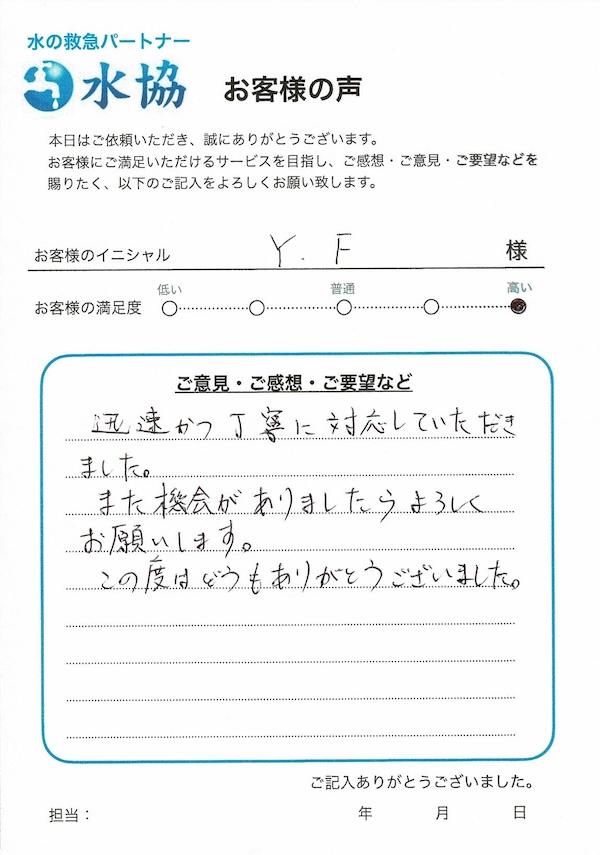 水の救急パートナー
水協 お客様の声
本日はご依頼いただき、誠にありがとうございます。
お客様にご満足いただけるサービスを目指し、ご感想・ご意見・ご要望などを
賜りたく、以下のご記入をよろしくお願い致します。
お客様のイニシャル Y.F 様
低い 普通 高い
お客様の満足度
ご意見・ご感想・ご要望など
迅速かつ丁寧に対応していただき
ました。
また機会がありましたらよろしく
お願いします。
この度はどうもありがとうございました。
ご記入ありがとうございました。
担当： 年 月 日